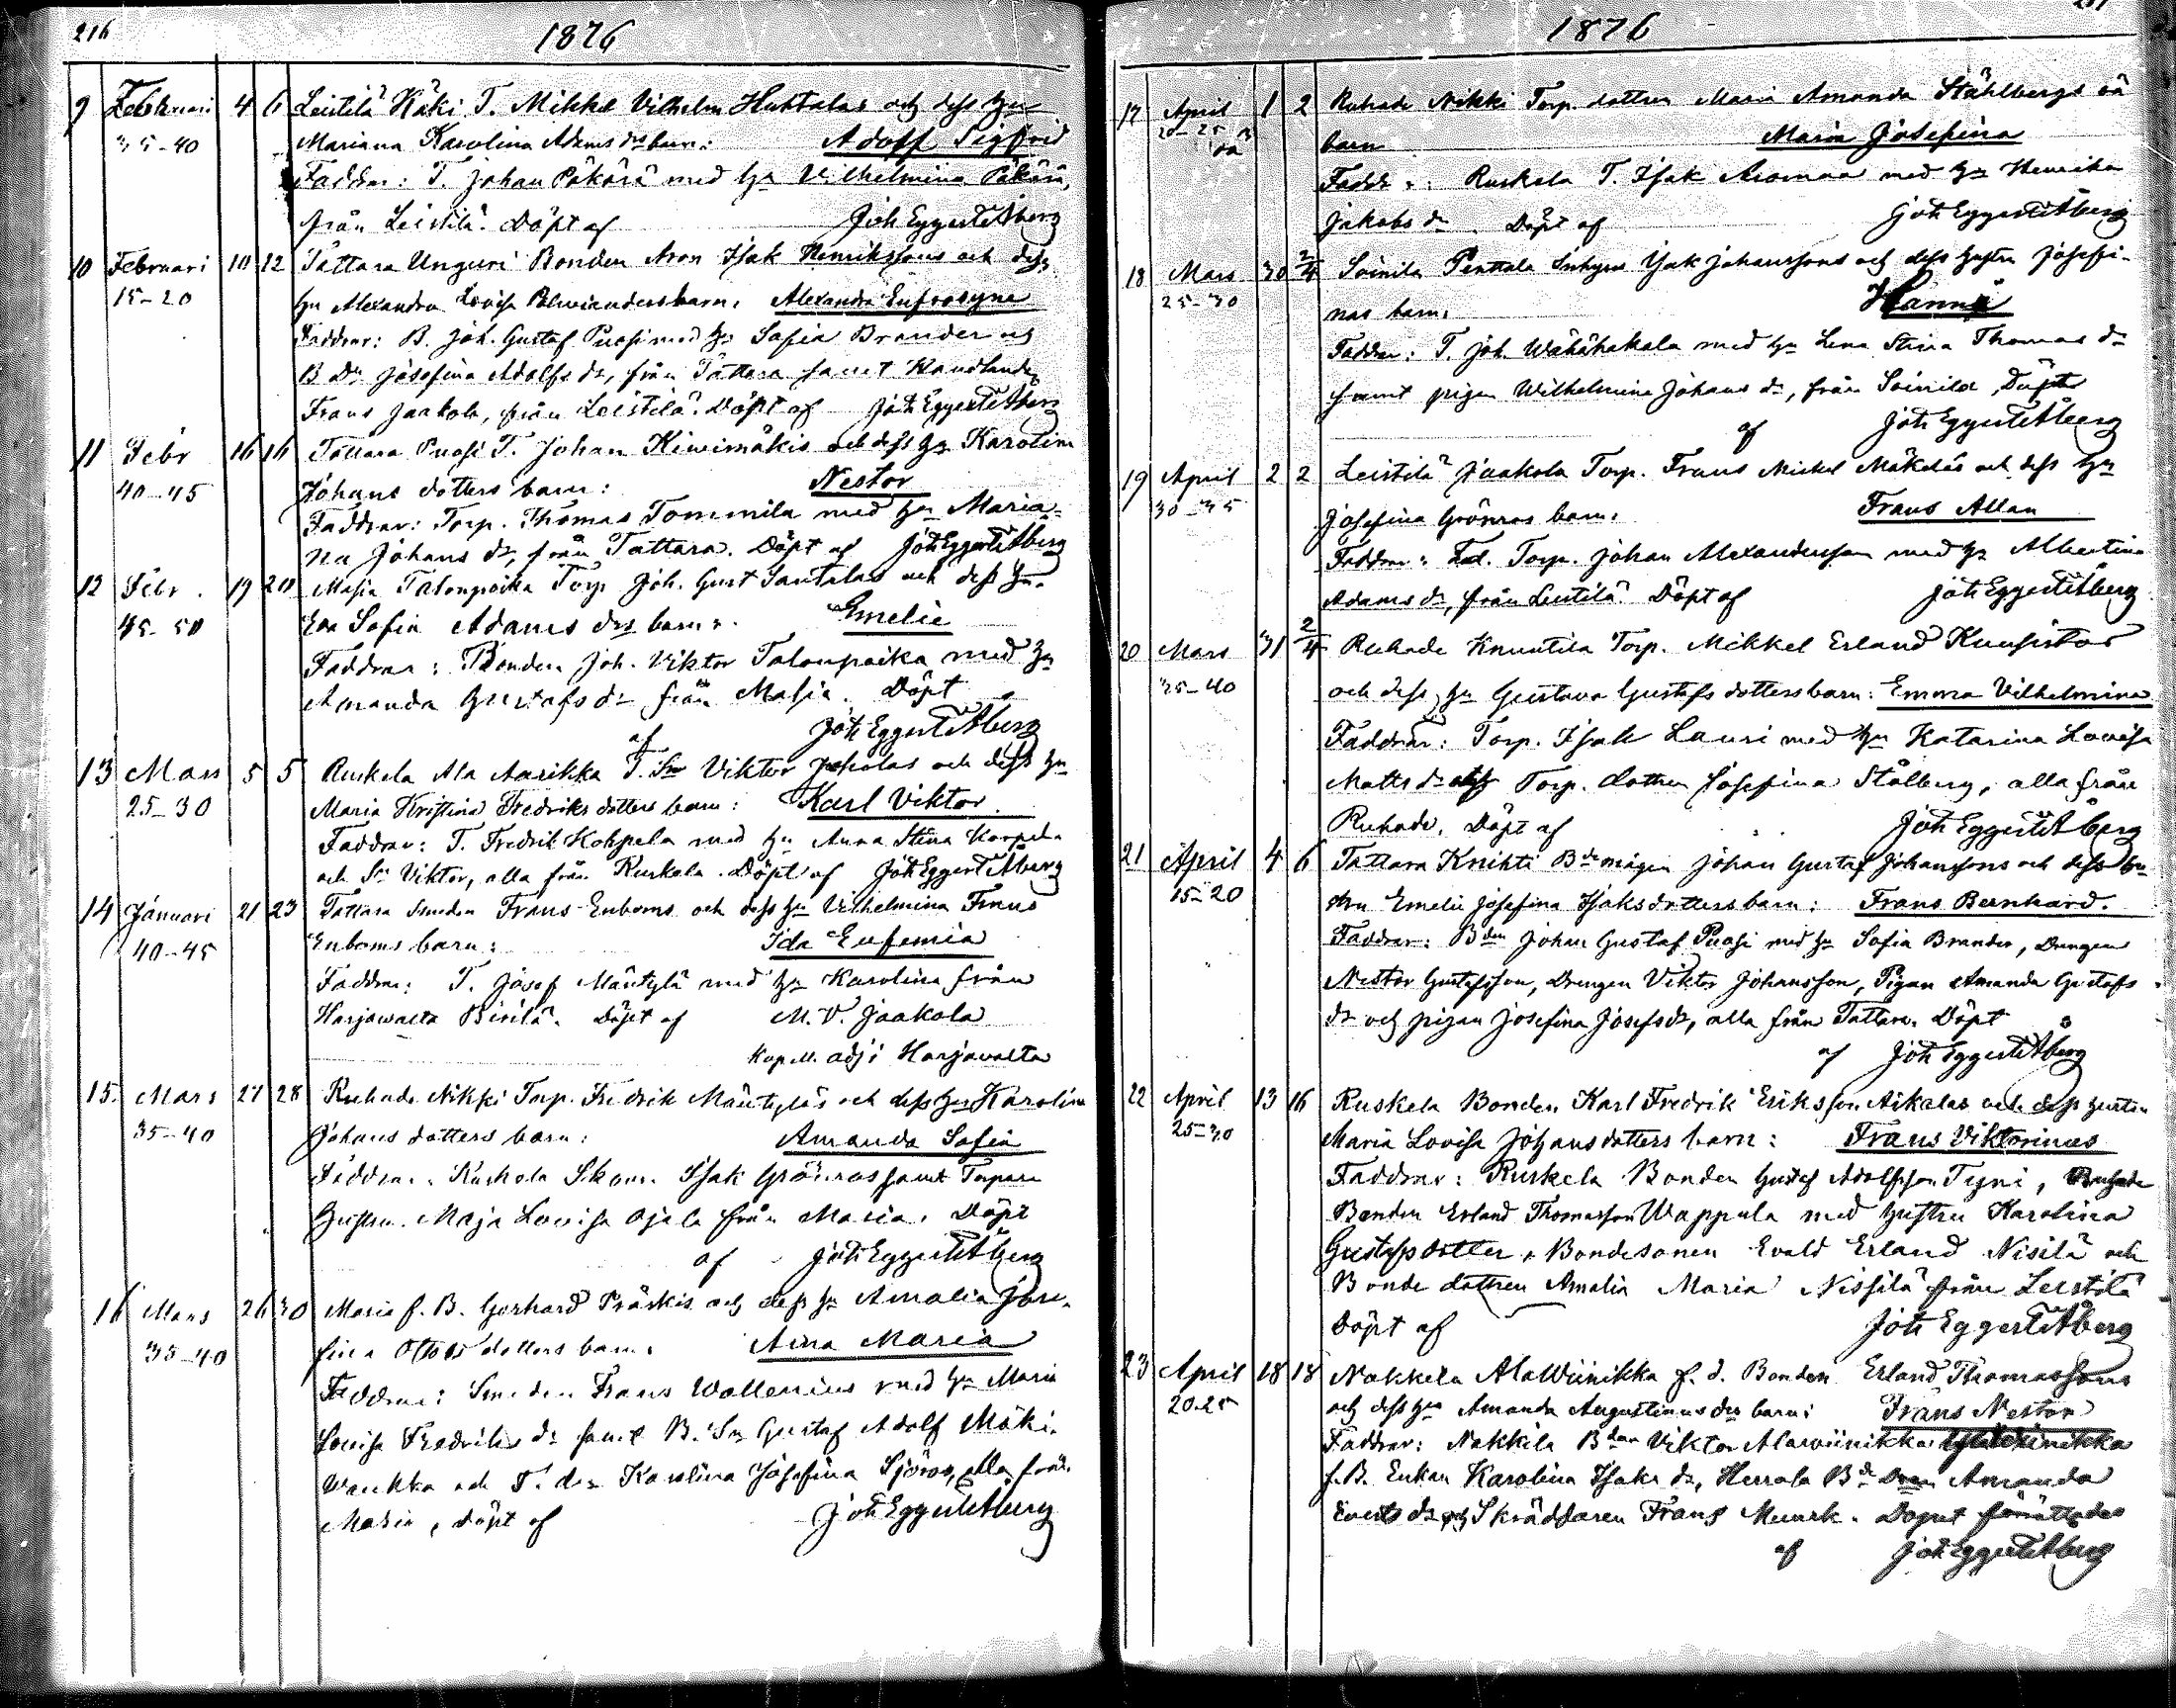 216
1876
9 Februari 4 6 Leistilä Käki T. Mikkel Vilhelm Huhtalas och dess hu
35-40 Mariana Karolina Adams drs barn: Adolf Sigfrid
Faddrar: T. Johan Päkärä med hu Vilhelmina Päkärä,
från Leistilä. Döpt af Joh Eggert Åberg
10 Februari 10 12 Tattara Unguri Bonden Aron Isak Henrikssons och dess
15-20 hu Alexandra Lovisa barn. Alexandra Eufrosyne
Faddrar: B. Joh. Gustaf Puosi med hu Sofia Brander och
B Dr Josefina Adolfs dr, från Tattara samt Handlanden
Frans Jaakola, från Leistilä. Döpt af Joh Eggert Åberg
11 Febr 16 16 Tattara Puosi T. Johan Kiwimäkis och dess hu Karolina
40-45 Johans dotters barn: Nestor
Faddrar: Torp. Thomas Tommila med hu Maria-
na Johans dr, från Tattara. Döpt af Joh Eggert Åberg
12 Febr. 19 20 Masia Talonpoika Torp Joh. Gust Santalas och dess hu.
45-50 Eva Sofia Adams drs barn: Emelie
Faddrar: Bonden Joh. Viktor Talonpoika med hu
Amanda Gustafs dr från Masia. Döpt
af Joh Eggert Åberg
13 Mars 5 5 Ruskela Ala Aarikka T. Sn Viktor Jokolas och dess hu
25-30 Maria Kristina Fredriks dotters barn: Karl Viktor.
Faddrar: T. Fredrik Korpela med hu Anna Stina Korpela
och Sn Viktor, alla från Ruskela. Döpt af Joh Eggert Åberg
14 Januari 21 23 Tattara Smeden Frans Enboms och dess hu Vilhelmina Frans
40-45 Enboms barn: Ida Eufemia
Faddrar: T. Josef Mäntylä med hu Karolina från
Harjawalta Pirilä. Döpt af M. V. Jaakola
Kapell. adj i Harjavalta
15. Mars 27 28 Ruhade Nikki Torp. Fredrik Mäntyläs och dess hu Karolina
35-40 Johans dotters barn: Amanda Sofia
Faddrar: Ruskela Skom. Isak Grönroos samt Torpare
Hustrun. Maja Lovisa Ojala från Masia. Döpt
af Joh Eggert Åberg
16 Mars 26 30 Masia f. B. Gerhard Präskis och dess hu Amalia Jose-
35-40 fina Ottos dotters barn. Aina Maria
Faddrar: Smeden Frans Wallenius med hu Maria
Lovisa Fredriks dr samt B. Sn Gustaf Adolf Mäki-
Warikka och T. dr Karolina Josefina Sjöros, alla från
Masia, döpt af Joh Eggert Åberg
1876
17 April 1 2 Ruhade Nikki Torp. dottren Maria Amanda Ståhlbergs oä
20-25 oä barn Maria Josefina
Faddr.: Ruskela T. Isak Aromaa med hu Henrika
Jakobs dr. Döpt af Joh Eggert Åberg
18 Mars 30 2/4 Soinila Penttala Inhyses Isak Johanssons och dess hustru Josefi-
25-30 nas barn. Hanna
Faddrar: T. Joh. Wähähakala med hu Lena Stina Thomas dr
samt pigan Wilhelmina Johans dr, från Soinila, Döpt
af Joh Eggert Åberg
19 April 2 2 Leistilä Jaakola Torp. Frans Mickel Mäkeläs och dess hu
30-35 Josefina Grönros barn. Frans Allan
Faddrar: Torp. Johan Alexandersson med hu Albertina
Adams dr, från Leistilä. Döpt af Joh Eggert Åberg
20 Mars 31 2/4 Ruhade Knuutila Torp. Mikkel Erland Kuusistos
35-40 och dess hu Gustava Gustafs dotters barn: Emma Vilhelmina
Faddrar: Torp. Isak Lauri med hu Katarina Lovisa
Matts dr och Torp. dottren Josefina Stålberg, alla från
Ruhade. Döpt af Joh Eggert Åberg
21 April 4 6 Tattara Knihti Bdemågen Johan Gustaf Johanssons och dess hu-
15-20 stru Emelie Josefina Isaks dotters barn: Frans Bernhard.
Faddrar: Bden Johan Gustaf Puosi med hu Sofia Brander, Drengen
Nestor Gustafsson, Drengen Viktor Johansson, Pigan Amanda Gustafs
dr och pigan Josefina Josefs dr, alla från Tattara. Döpt
af Joh Eggert Åberg
22 April 13 16 Ruskela Bonden Karl Fredrik Eriksson Aikalas och dess hustru
25-30 Maria Lovisa Johans dotters barn: Frans Viktorinus
Faddrar: Ruskela Bonden Gustaf Adolfsson Tyni, Ruhade
Bonden Erland Thomasson Wappula med hustru Karolina
Gustafsdotter, Bondesonen Evald Erland Nisilä och
Bonde dottren Amalia Maria Nissilä från Leistilä
Döpt af Joh Eggert Åberg
23 April 18 18 Nakkila AlaWiinikka f. d. Bonden Erland Thomassons
20-25 och dess hu Amanda Augustinus drs barn: Frans Nestor
Faddrar: Nakkila Bden Viktor Alawiinikka
f.B. Enkan Karolina Isaks dr, Herrala Bde Dren Amanda
Everts dr och Skräddaren Frans Munrk. Dopet förrättades
af Joh Eggert Åberg